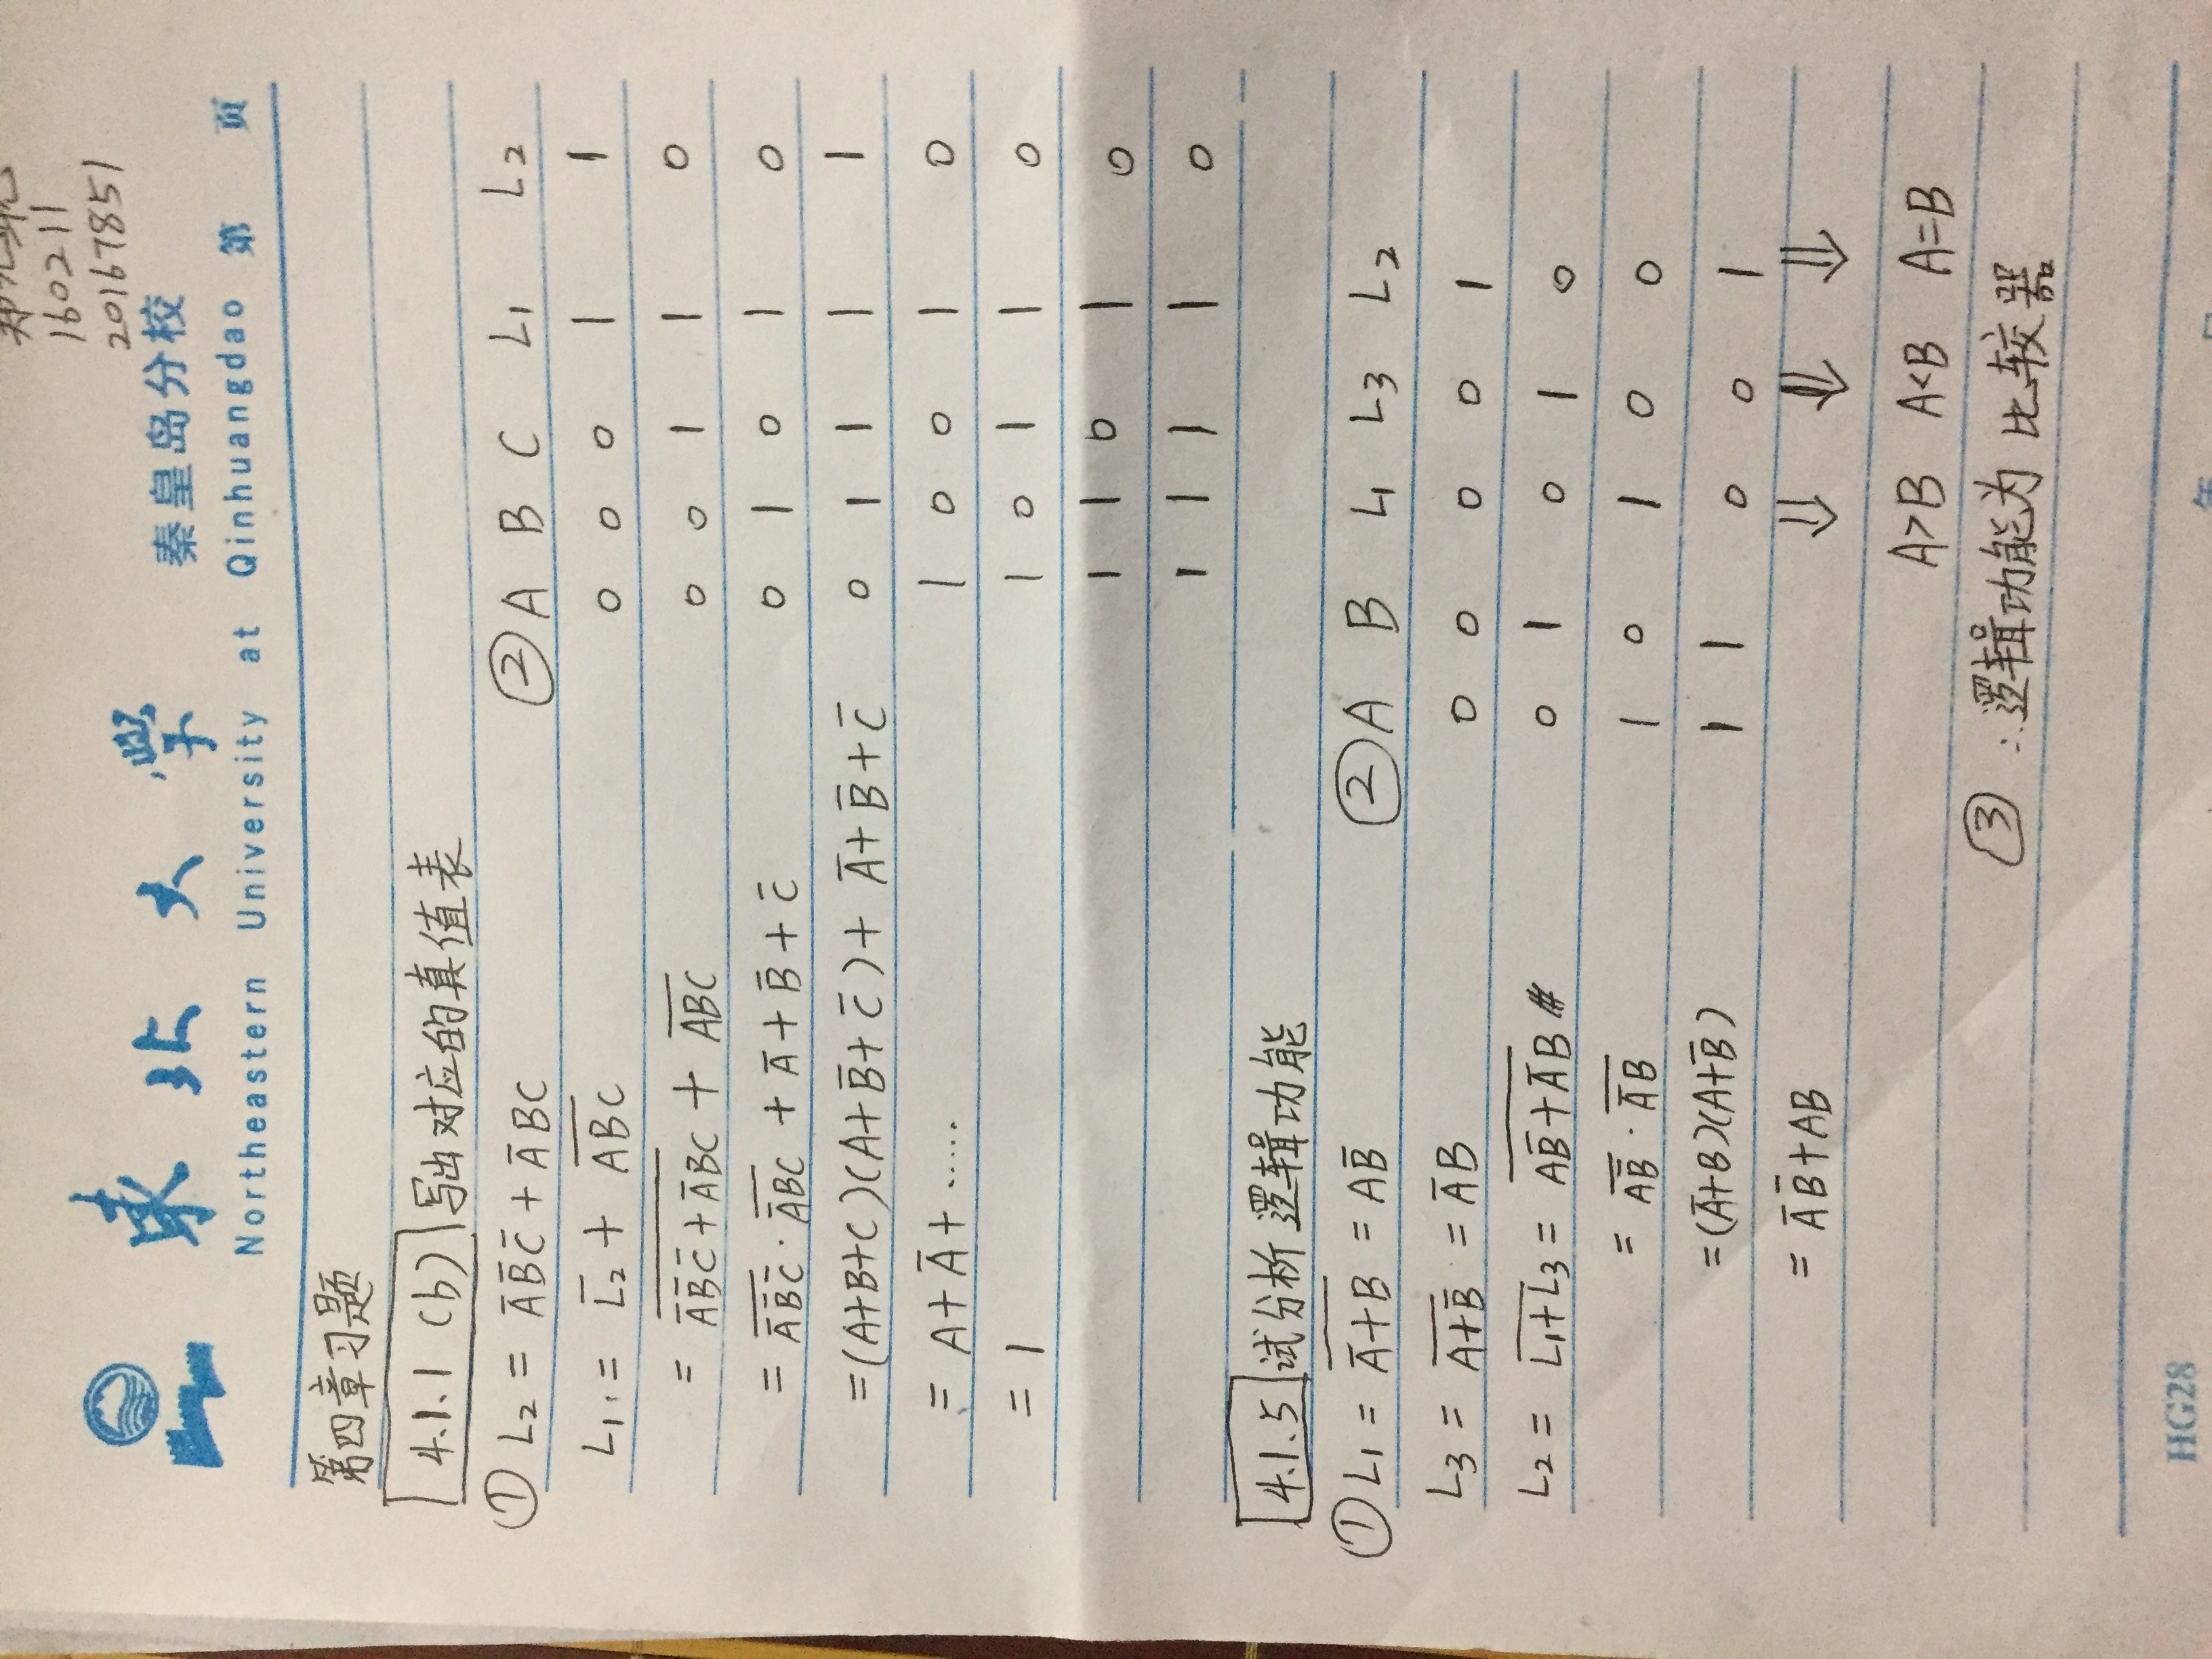 160211
20167851
東北大學 秦皇岛分校
Northeastern University at Qinhuangdao 第 页
第四章习题
4.1.1 (b) 写出对应的真值表
① L₂ = A̅B̅C̅ + A̅BC
L₁ = L̅₂ + \overline{ABC}
= \overline{A̅B̅C̅ + A̅BC} + \overline{ABC}
= \overline{A̅B̅C̅} · \overline{A̅BC} + A̅ + B̅ + C̅
= (A+B+C)(A+B̅+C̅) + A̅+B̅+C̅
= A+A̅+·····
= 1
② A B C L₁ L₂
0 0 0 1 1
0 0 1 1 0
0 1 0 1 0
0 1 1 1 1
1 0 0 1 0
1 0 1 1 0
1 1 0 1 0
1 1 1 1 0
4.1.5 试分析逻辑功能
① L₁ = \overline{A̅+B} = AB̅
L₃ = \overline{A+B̅} = A̅B
L₂ = \overline{L₁+L₃} = \overline{AB̅+A̅B}
= \overline{AB̅} · \overline{A̅B}
= (A̅+B)(A+B̅)
= A̅B̅+AB
② A B L₁ L₃ L₂
0 0 0 0 1
0 1 0 1 0
1 0 1 0 0
1 1 0 0 1
⇓ ⇓ ⇓
A>B A<B A=B
③ ∴逻辑功能为 比较器
HG28